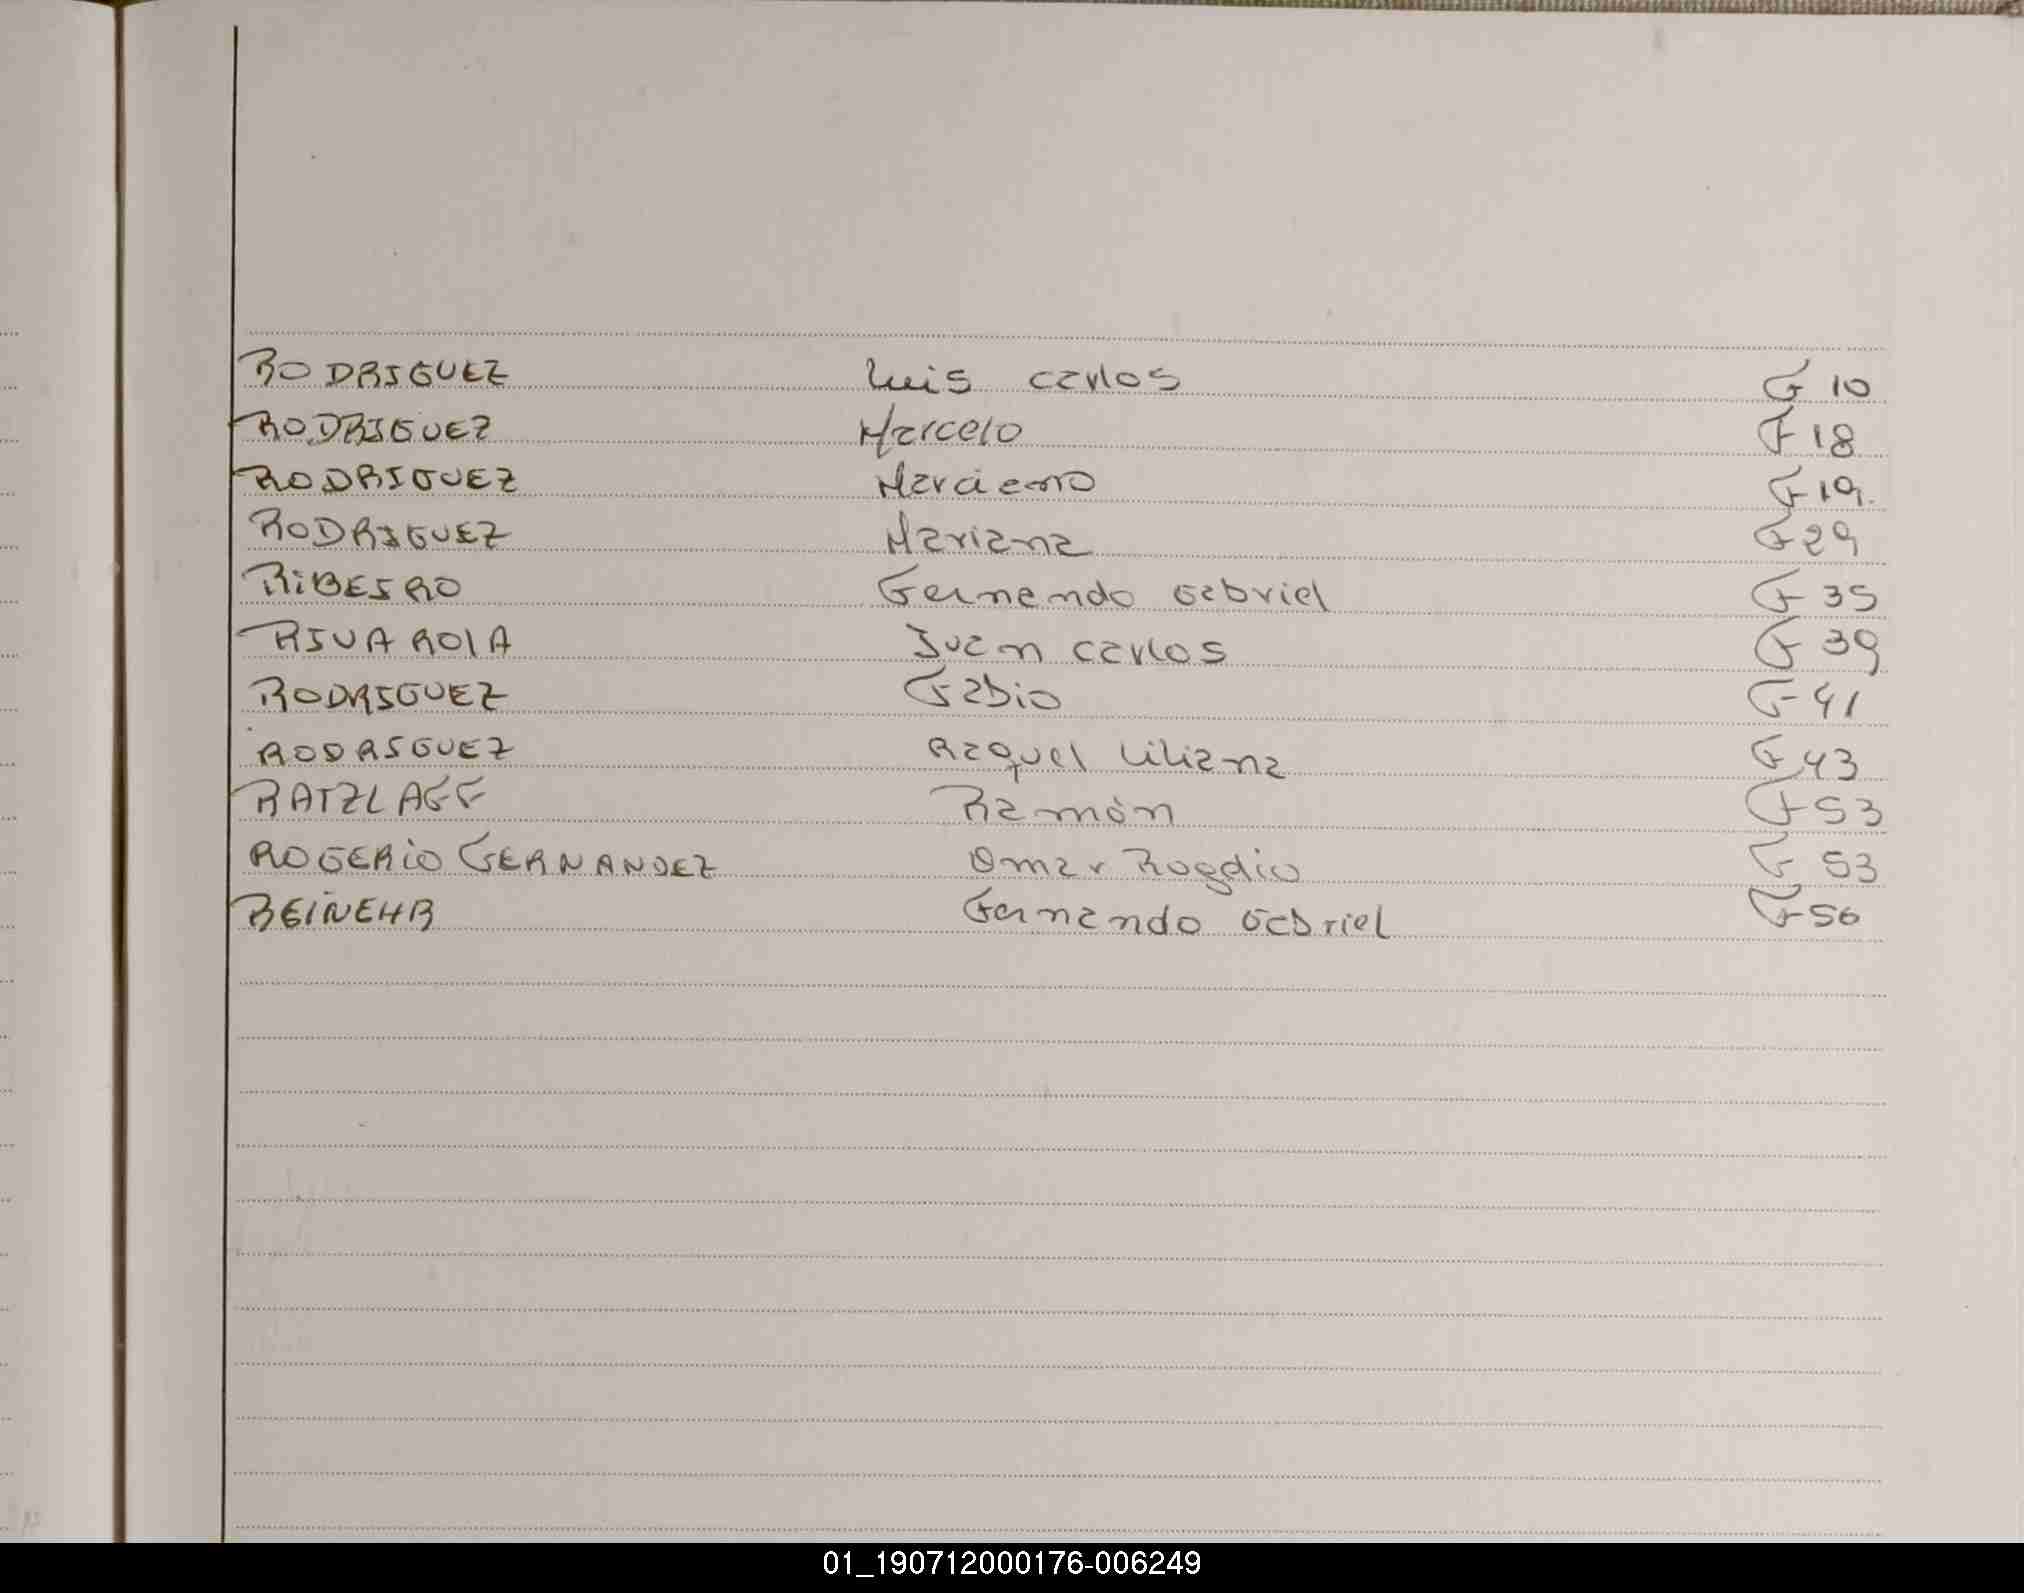 RODRIGUEZ Luis Carlos F 10
RODRIGUEZ Marcelo F 18
RODRIGUEZ F 19
RODRIGUEZ Mariana F 29
RIBEIRO Fernando Gabriel F 35
RIVAROLA Juan Carlos F 39
RODRIGUEZ Fabio F 41
RODRIGUEZ Raquel Liliana F 43
RATZLAFF Ramón F 53
ROGERIO FERNANDEZ Omar Rogelio F 53
Fernando Gabriel F 56
01_190712000176-006249